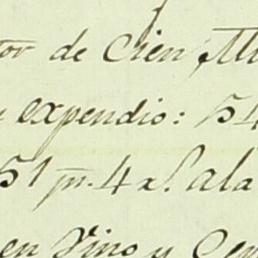 tor de Cien Mi
expendio: 54
51 p. 4 r. ala
en Vino y Cer